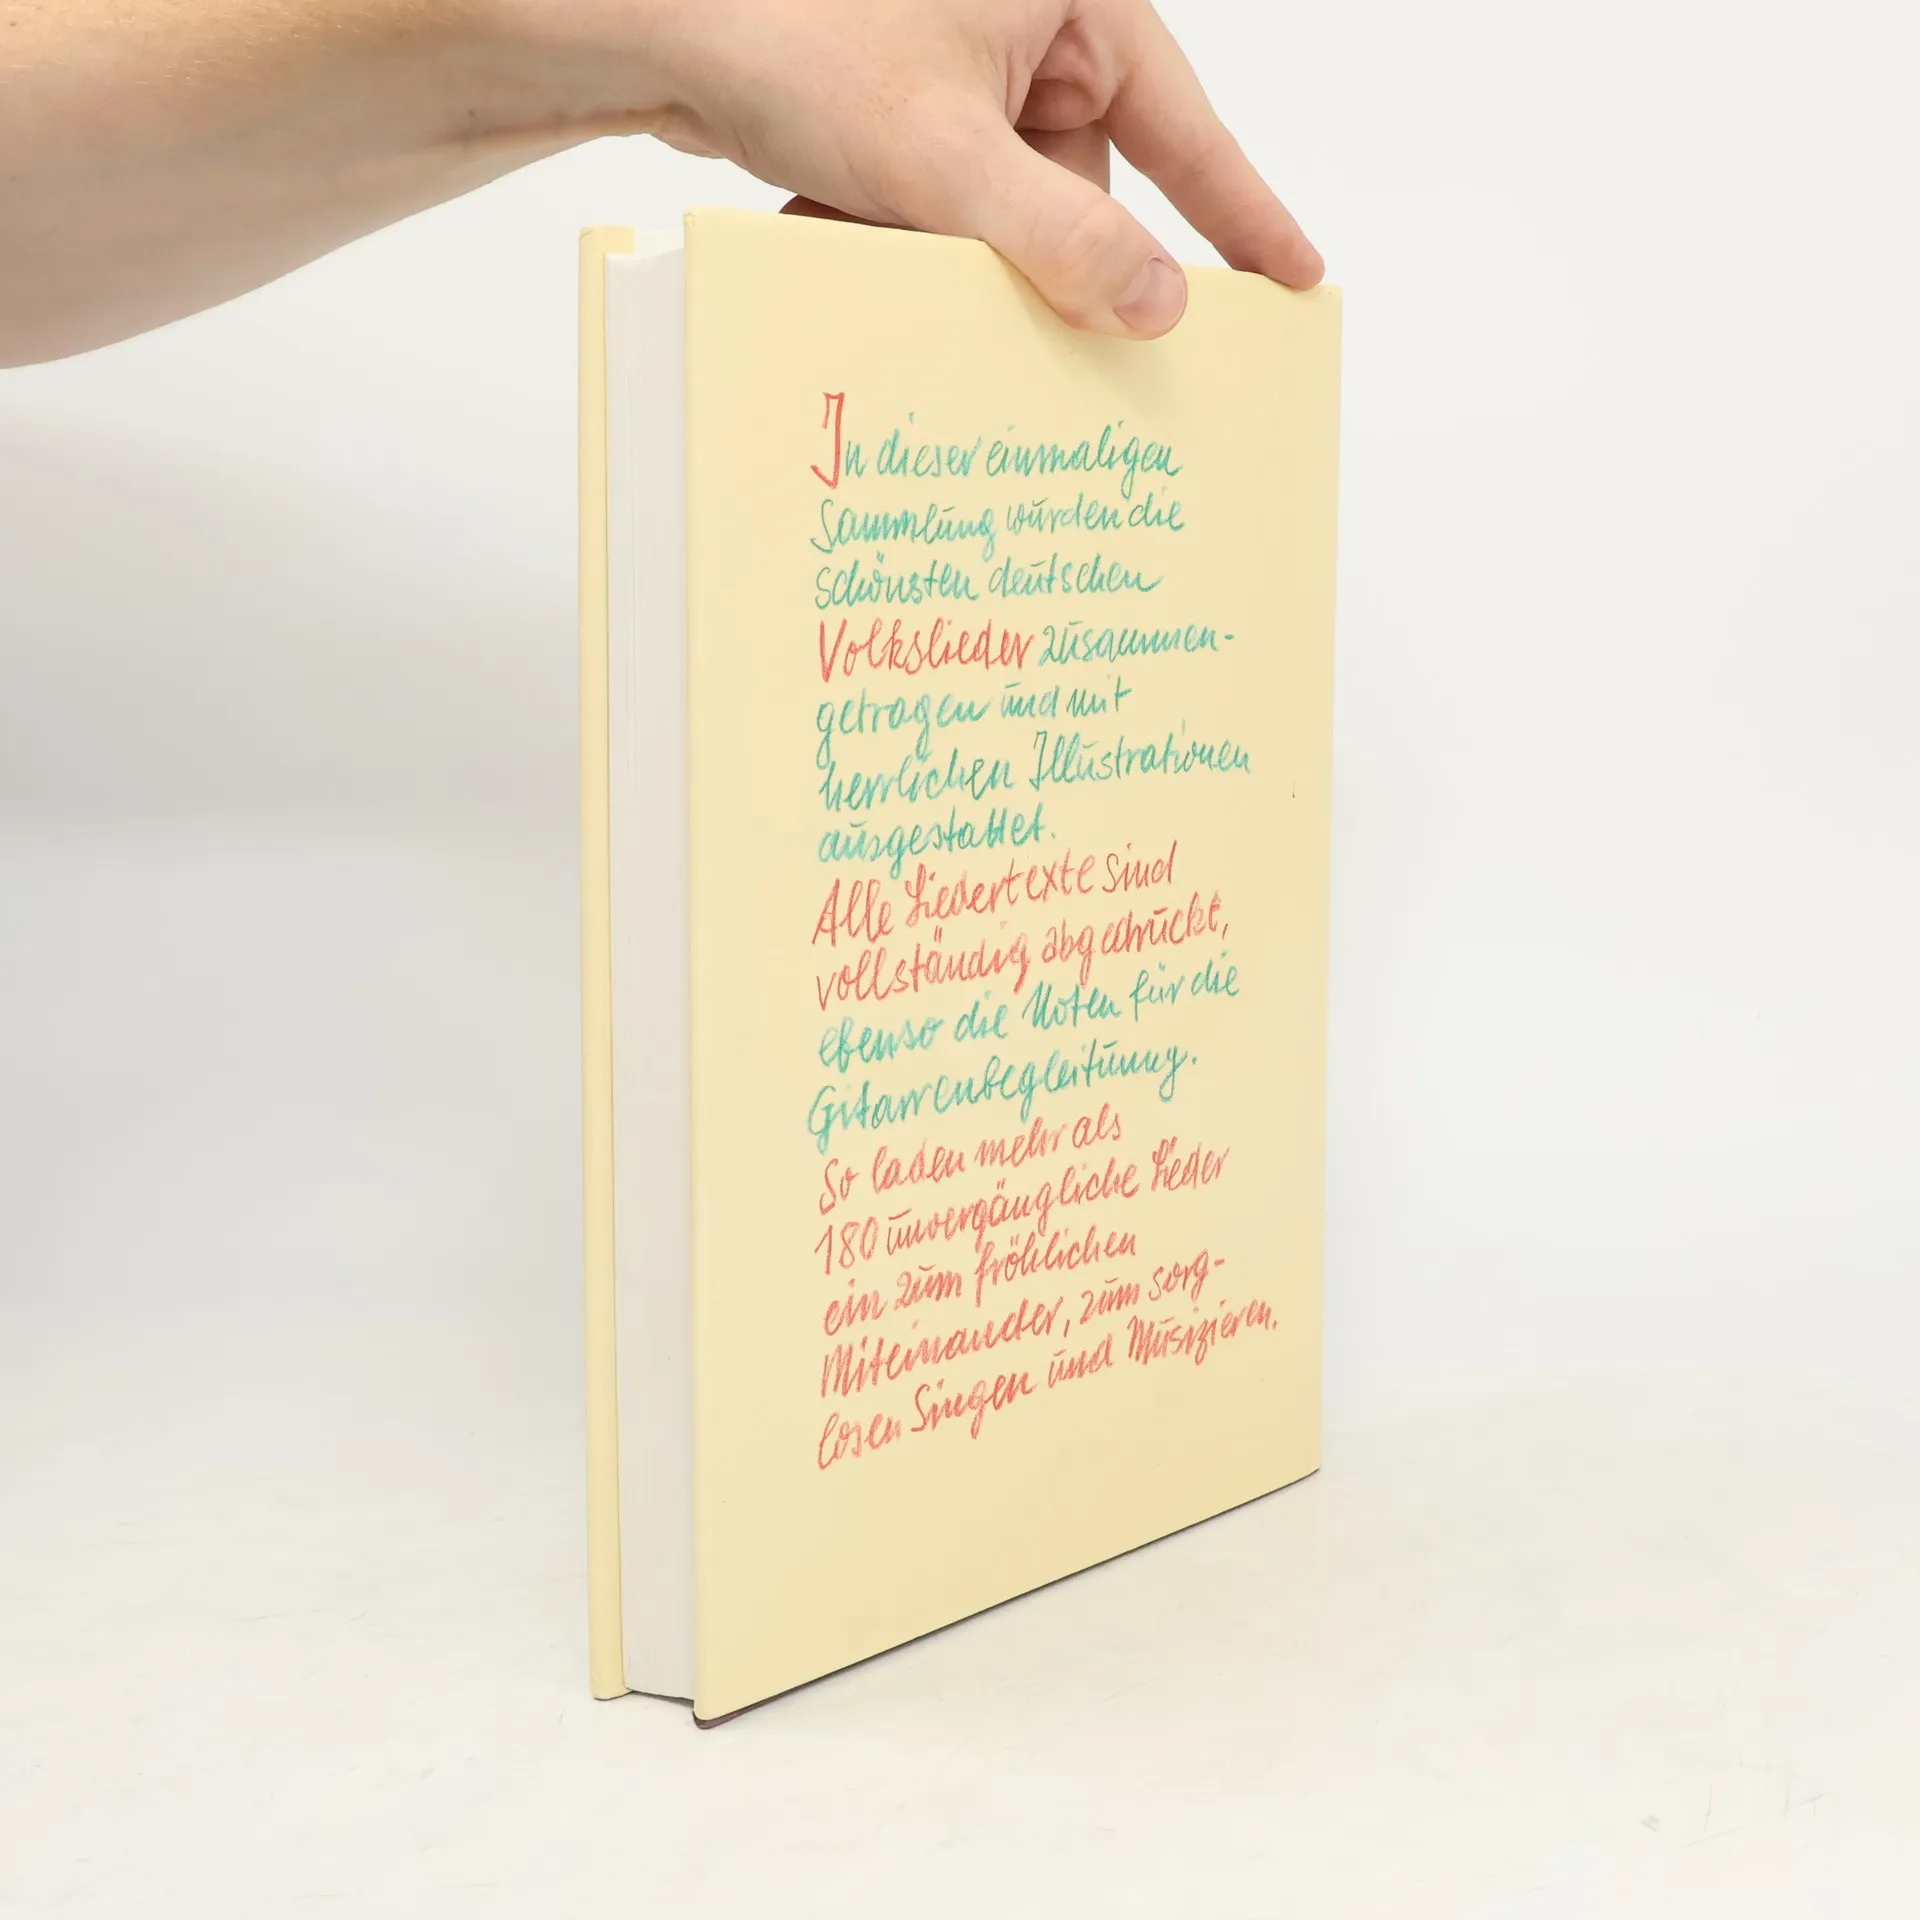 In dieser einmaligen
Sammlung wurden die
schönsten deutschen
Volkslieder zusammen-
getragen und mit
herrlichen Illustrationen
ausgestattet.
Alle Liedertexte sind
vollständig abgedruckt,
ebenso die Noten für die
Gitarrenbegleitung.
So laden mehr als
180 unvergängliche Lieder
ein zum fröhlichen
Miteinander, zum sorg-
losen Singen und Musizieren.